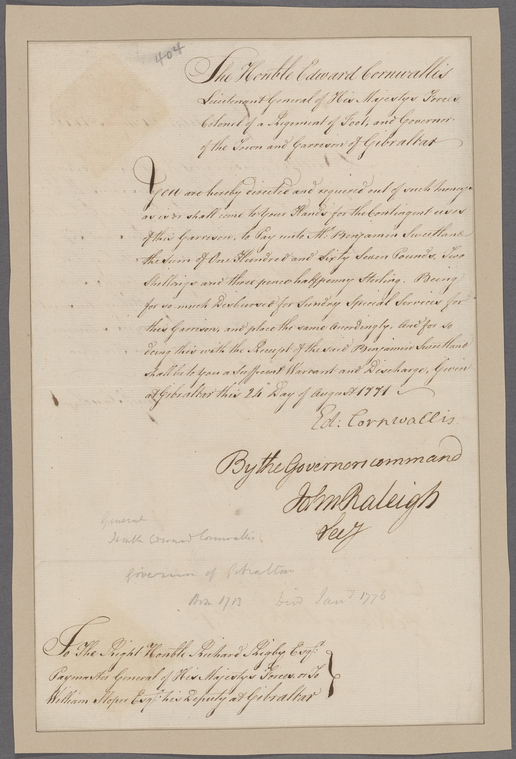 404
The Honble Edward Cornwallis
Lieutenant General of His Majestys Forces
Colonel of a Regiment of Foot, and Governor
of the Town and Garrison of Gibraltar
You are hereby directed and required out of such
as is or shall come to your Hands for the Contingent uses
of this Garrison, to Pay unto Mr. Benjamin Sweetland
the sum of One Hundred and Sixty Seven Pounds, Two
Shillings and three pence halfpenny Sterling. Being
for so much Disbursed for Sundry Special Services for
this Garrison, and place the same Accordingly. And for so
doing this with the Receipt of the said Benjamin Sweetland
shall be to you a Sufficient Warrant and Discharge, Given
at Gibraltar this 24 Day of August 1771
Ed: Cornwallis
By the Governors command
John Raleigh
Secy
General
Cornwallis.
Governor of Gibraltar
Born 1713 Died Jany 1776
To The Right Honble Richard Rigby Esqr.
Paymaster General of His Majestys Forces, or To
William Esqr. his Deputy at Gibraltar